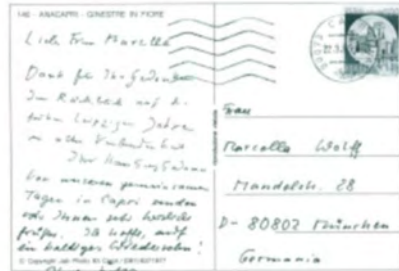 146 - ANACAPRI - GINESTRE IN FIORE
Liebe Frau Marcella
Dank für Ihr Gedenken
Im Rückblick auf die
frühen Leipziger Jahre
in alter Verbundenheit
Ihr
Von unseren gemeinsamen
Tagen in Capri senden
wir Ihnen sehr herzliche
Grüße. Ich hoffe, auf
ein baldiges Wiedersehen!
Frau
Marcella Wolff
Mandelstr. 28
D- 80802 München
Germania